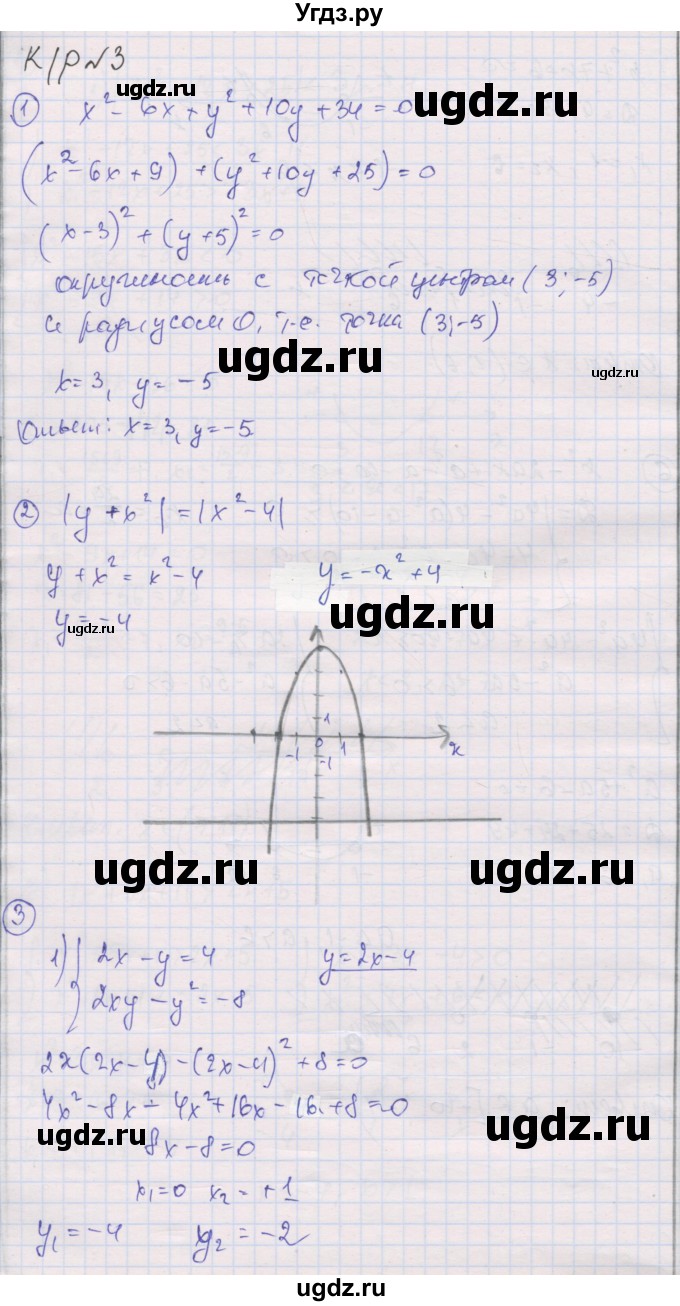 Угдз.ру
К/Р №3
① x² - 6x + y² + 10y + 34 = 0
(x² - 6x + 9) + (y² + 10y + 25) = 0
(x - 3)² + (y + 5)² = 0
окружность с точкой центром (3; -5)
и радиусом 0, т.е. точка (3; -5)
ugdz.ru
x = 3, y = -5
Ответ: x = 3, y = -5
② |y + x²| = |x² - 4|
y + x² = x² - 4 y = -x² + 4
y = -4
1
-1 0 1 x
-1
ugdz.ru ugdz.ru
③
1) { 2x - y = 4 y = 2x - 4
2xy - y² = -8
2x(2x - 4) - (2x - 4)² + 8 = 0
4x² - 8x - 4x² + 16x - 16 + 8 = 0
8x - 8 = 0
x₁ = 0 x₂ = +1
y₁ = -4 y₂ = -2
ugdz.ru